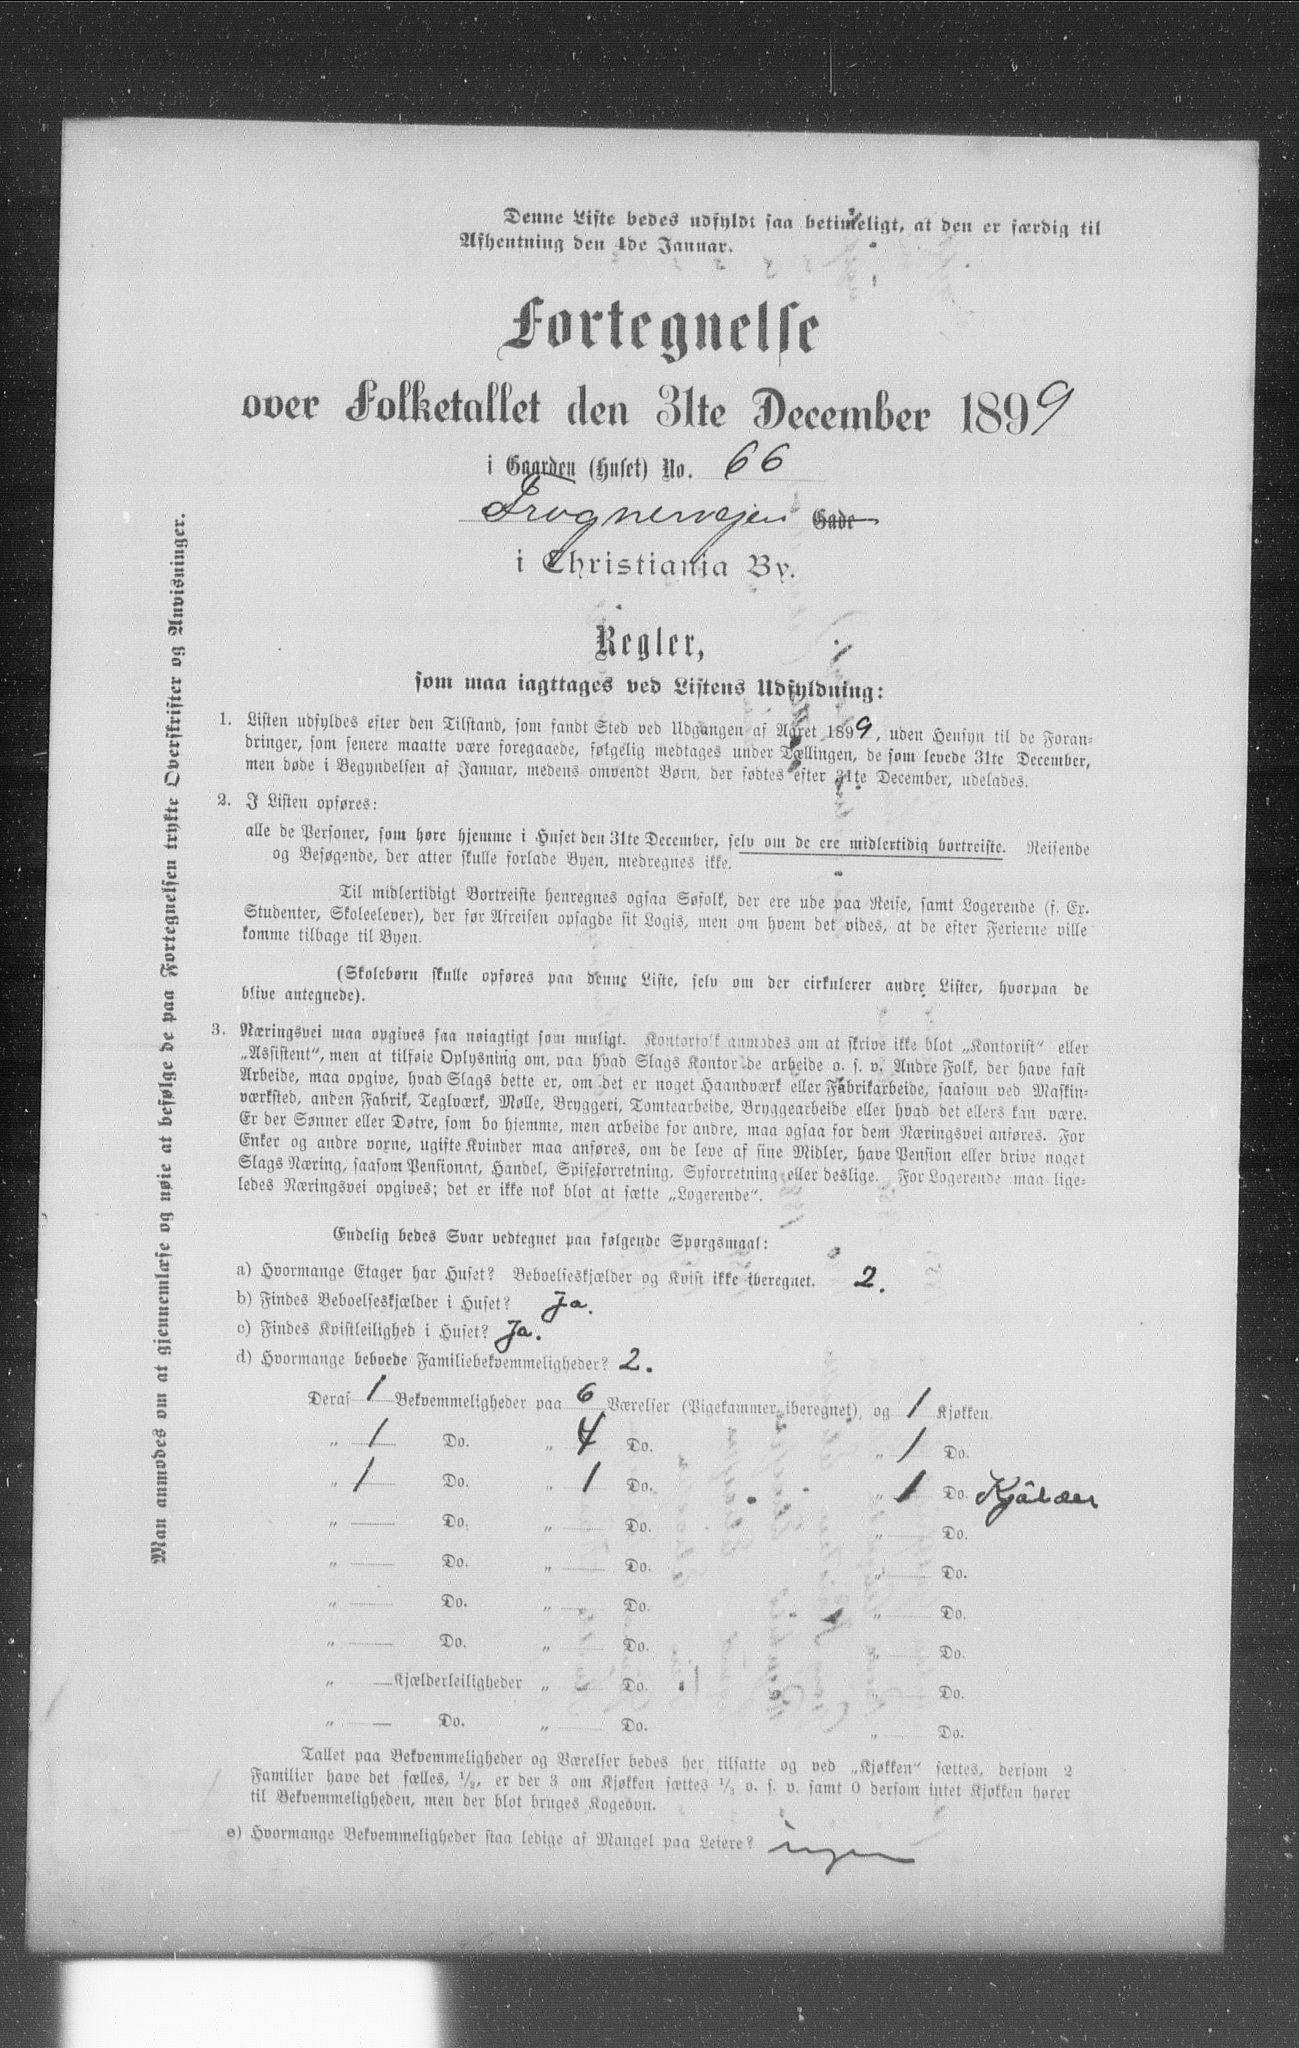 Denne Liste bedes udfyldt saa betimeligt, at den er færdig til
Afhentning den 4de Januar.
Fortegnelse
over Folketallet den 31te December 1899
i Gaarden (Huset) No. 66
Frognerveien Gade
i Christiania By.
Regler,
som maa iagttages ved Listens Udfyldning:
1. Listen udfyldes efter den Tilstand, som fandt Sted ved Udgangen af Aaret 1899, uden Hensyn til de Foran-
dringer, som senere maatte være foregaaede, følgelig medtages under Tællingen, de som levede 31te December,
men døde i Begyndelsen af Januar, medens omvendt Børn, der fødtes efter 31te December, udelades.
2. I Listen opføres:
alle de Personer, som høre hjemme i Huset den 31te December, selv om de ere midlertidig bortreiste. Reisende
og Besøgende, der atter skulle forlade Byen, medregnes ikke.
Til midlertidigt Bortreiste henregnes ogsaa Søfolk, der ere ude paa Reise, samt Logerende (f. Ex.
Studenter, Skoleelever), der før Afreisen opsagde sit Logis, men om hvem det vides, at de efter Ferierne ville
komme tilbage til Byen.
(Skolebørn skulle opføres paa denne Liste, selv om der cirkulerer andre Lister, hvorpaa de
blive antegnede).
3. Næringsvei maa opgives saa nøiagtigt som muligt. Kontorfolk anmodes om at skrive ikke blot „Kontorist“ eller
„Assistent“, men at tilføie Oplysning om, paa hvad Slags Kontor de arbeide o. s. v. Andre Folk, der have fast
Arbeide, maa opgive, hvad Slags dette er, om det er noget Haandværk eller Fabrikarbeide, saasom ved Maskin-
værksted, anden Fabrik, Teglværk, Mølle, Bryggeri, Tomtearbeide, Bryggearbeide eller hvad det ellers kan være.
Er der Sønner eller Døtre, som bo hjemme, men arbeide for andre, maa ogsaa for dem Næringsvei anføres. For
Enker og andre voxne, ugifte Kvinder maa anføres, om de leve af sine Midler, have Pension eller drive noget
Slags Næring, saasom Pensionat, Handel, Spiseforretning, Syforretning eller deslige. For Logerende maa lige-
ledes Næringsvei opgives; det er ikke nok blot at sætte „Logerende“.
Endelig bedes Svar vedtegnet paa følgende Spørgsmaal:
a) Hvormange Etager har Huset? Beboelseskjælder og Kvist ikke iberegnet. 2.
b) Findes Beboelseskjælder i Huset? Ja.
c) Findes Kvistleilighed i Huset? Ja.
d) Hvormange beboede Familiebekvemmeligheder? 2.
Deraf 1 Bekvemmeligheder paa 6 Værelser (Pigekammer iberegnet), og 1 Kjøkken.
„ 1 Do. „ 4 Do. „ 1 Do.
„ 1 Do. „ 1 Do. „ 1 Do. Kjälder
„ Do. „ Do. „ Do.
„ Do. „ Do. „ Do.
„ Do. „ Do. „ Do.
„ Do. „ Do. „ Do.
„ Kjælderleiligheder „ Do. „ Do.
„ Do. „ Do. „ Do.
Tallet paa Bekvemmeligheder og Værelser bedes her tilsatte og ved „Kjøkken“ sættes, dersom 2
Familier have det fælles, 1/2, er der 3 om Kjøkken sættes 1/3 o. s. v. samt 0 dersom intet Kjøkken hører
til Bekvemmeligheden, men der blot bruges Kogeovn.
e) Hvormange Bekvemmeligheder staa ledige af Mangel paa Leiere? ingen
Man anmodes om at gjennemlæse og nøie at befølge de paa Fortegnelsen trykte Overskrifter og Anvisninger.